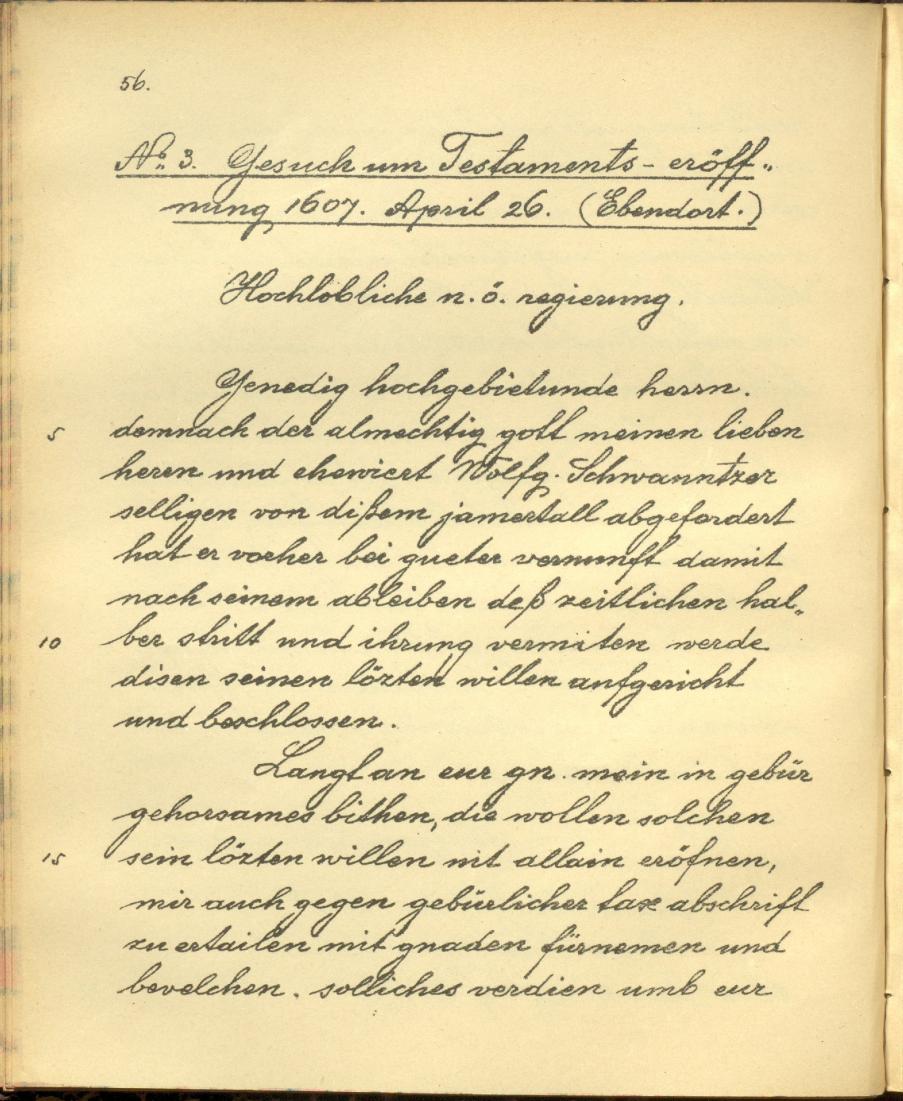 56.
No. 3. Gesuch um Testaments-eröff„
nung 1607. April 26. (Ebendort.)
Hochlöbliche n. ö. regierung.
Genedig hochgebietunde herrn.
5 demnach der almechtig gott meinen lieben
heren und ehewiert Wolfg. Schwanntzer
selligen von dißem jamertall abgefordert
hat er vorher bei gueter vernunft damit
nach seinem ableiben deß zeitlichen hal„
10 ber stritt und ihrung vermiten werde
disen seinen lözten willen aufgericht
und beschlossen.
Langt an eur gn. mein in gebür
gehorsames bithen, die wollen solchen
15 sein lözten willen nit allain eröfnen,
mir auch gegen gebürlicher tax abschrift
zu ertailen mit gnaden fürnemen und
bevelchen. solliches verdien umb eur